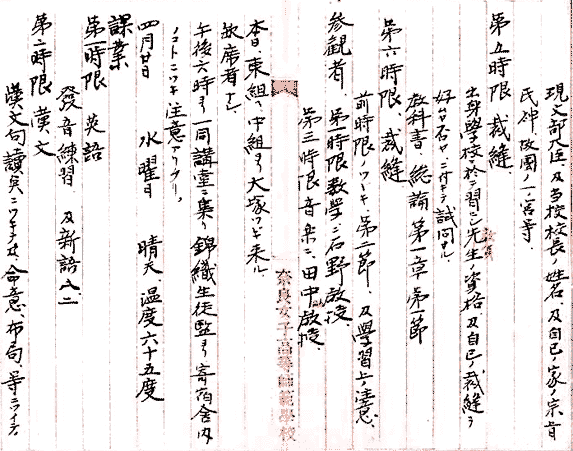 現文部大臣及当校校長ノ姓名、及自己ノ家ノ宗旨
氏神、故國ノ一ノ宮等、
第五時限 裁縫、
出身學校ニ於テ習ヒシ先生ノ資格及自己ノ裁縫ヲ
好ムカ否ヤニ付キテ試問サル
教科書、総論、第一章第一節
第六時限、裁縫、
前時限ノツヾキ、第二節、及學習上ノ注意、
参観者 第一時限数学ニ石野教授、
第三時限音楽ニ、田中教授、
本日東組ヨリ中組ヨリ大塚ツギ来ル
故席者ナシ、
午後六時ヨリ一同講堂ニ集リ錦織生徒監ヨリ寄宿舎内
ノコトニツキ注意アリタリ、
四月廿日 水曜日 晴天 温度六十五度
課業
第一時限 英語
發音練習、及新語之二
第二時限 漢文
漢文句讀ニツキテ、命意、布局、等ニツイテ
奈良女子高等師範學校